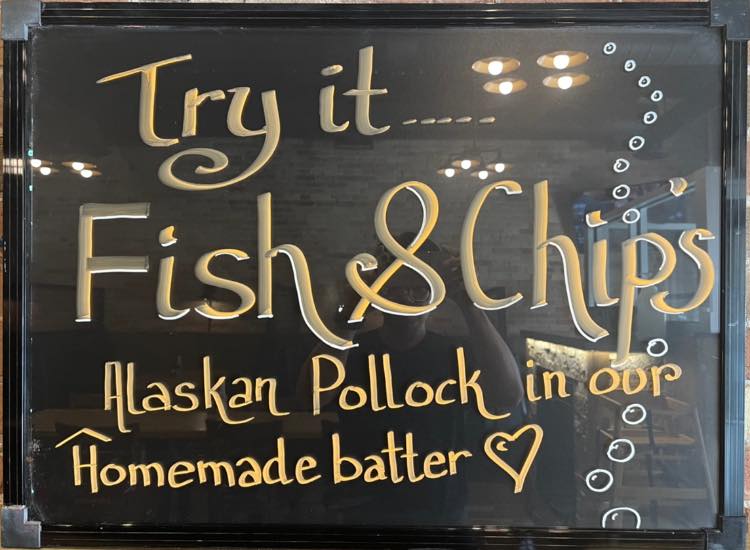 Try it.....
Fish & Chip's
Alaskan Pollock in our
Homemade batter ♡